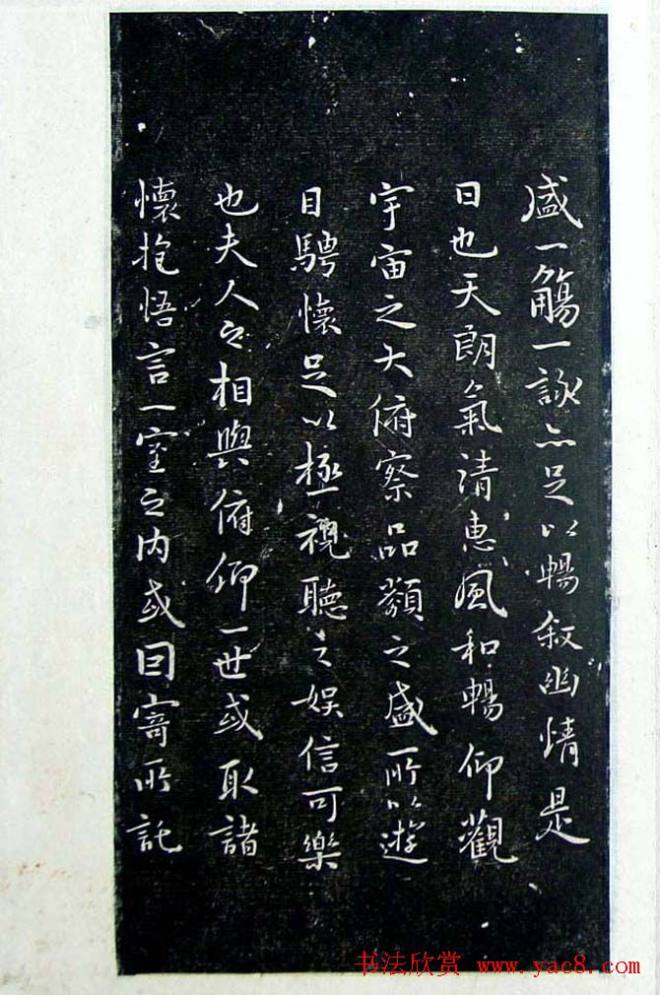 盛一觴一詠亦足以暢叙幽情是
日也天朗氣清惠風和暢仰觀
宇宙之大俯察品類之盛所以遊
目騁懷足以極視聽之娛信可樂
也夫人之相與俯仰一世或取諸
懷抱悟言一室之內或因寄所託
书法欣赏 www.yac8.com